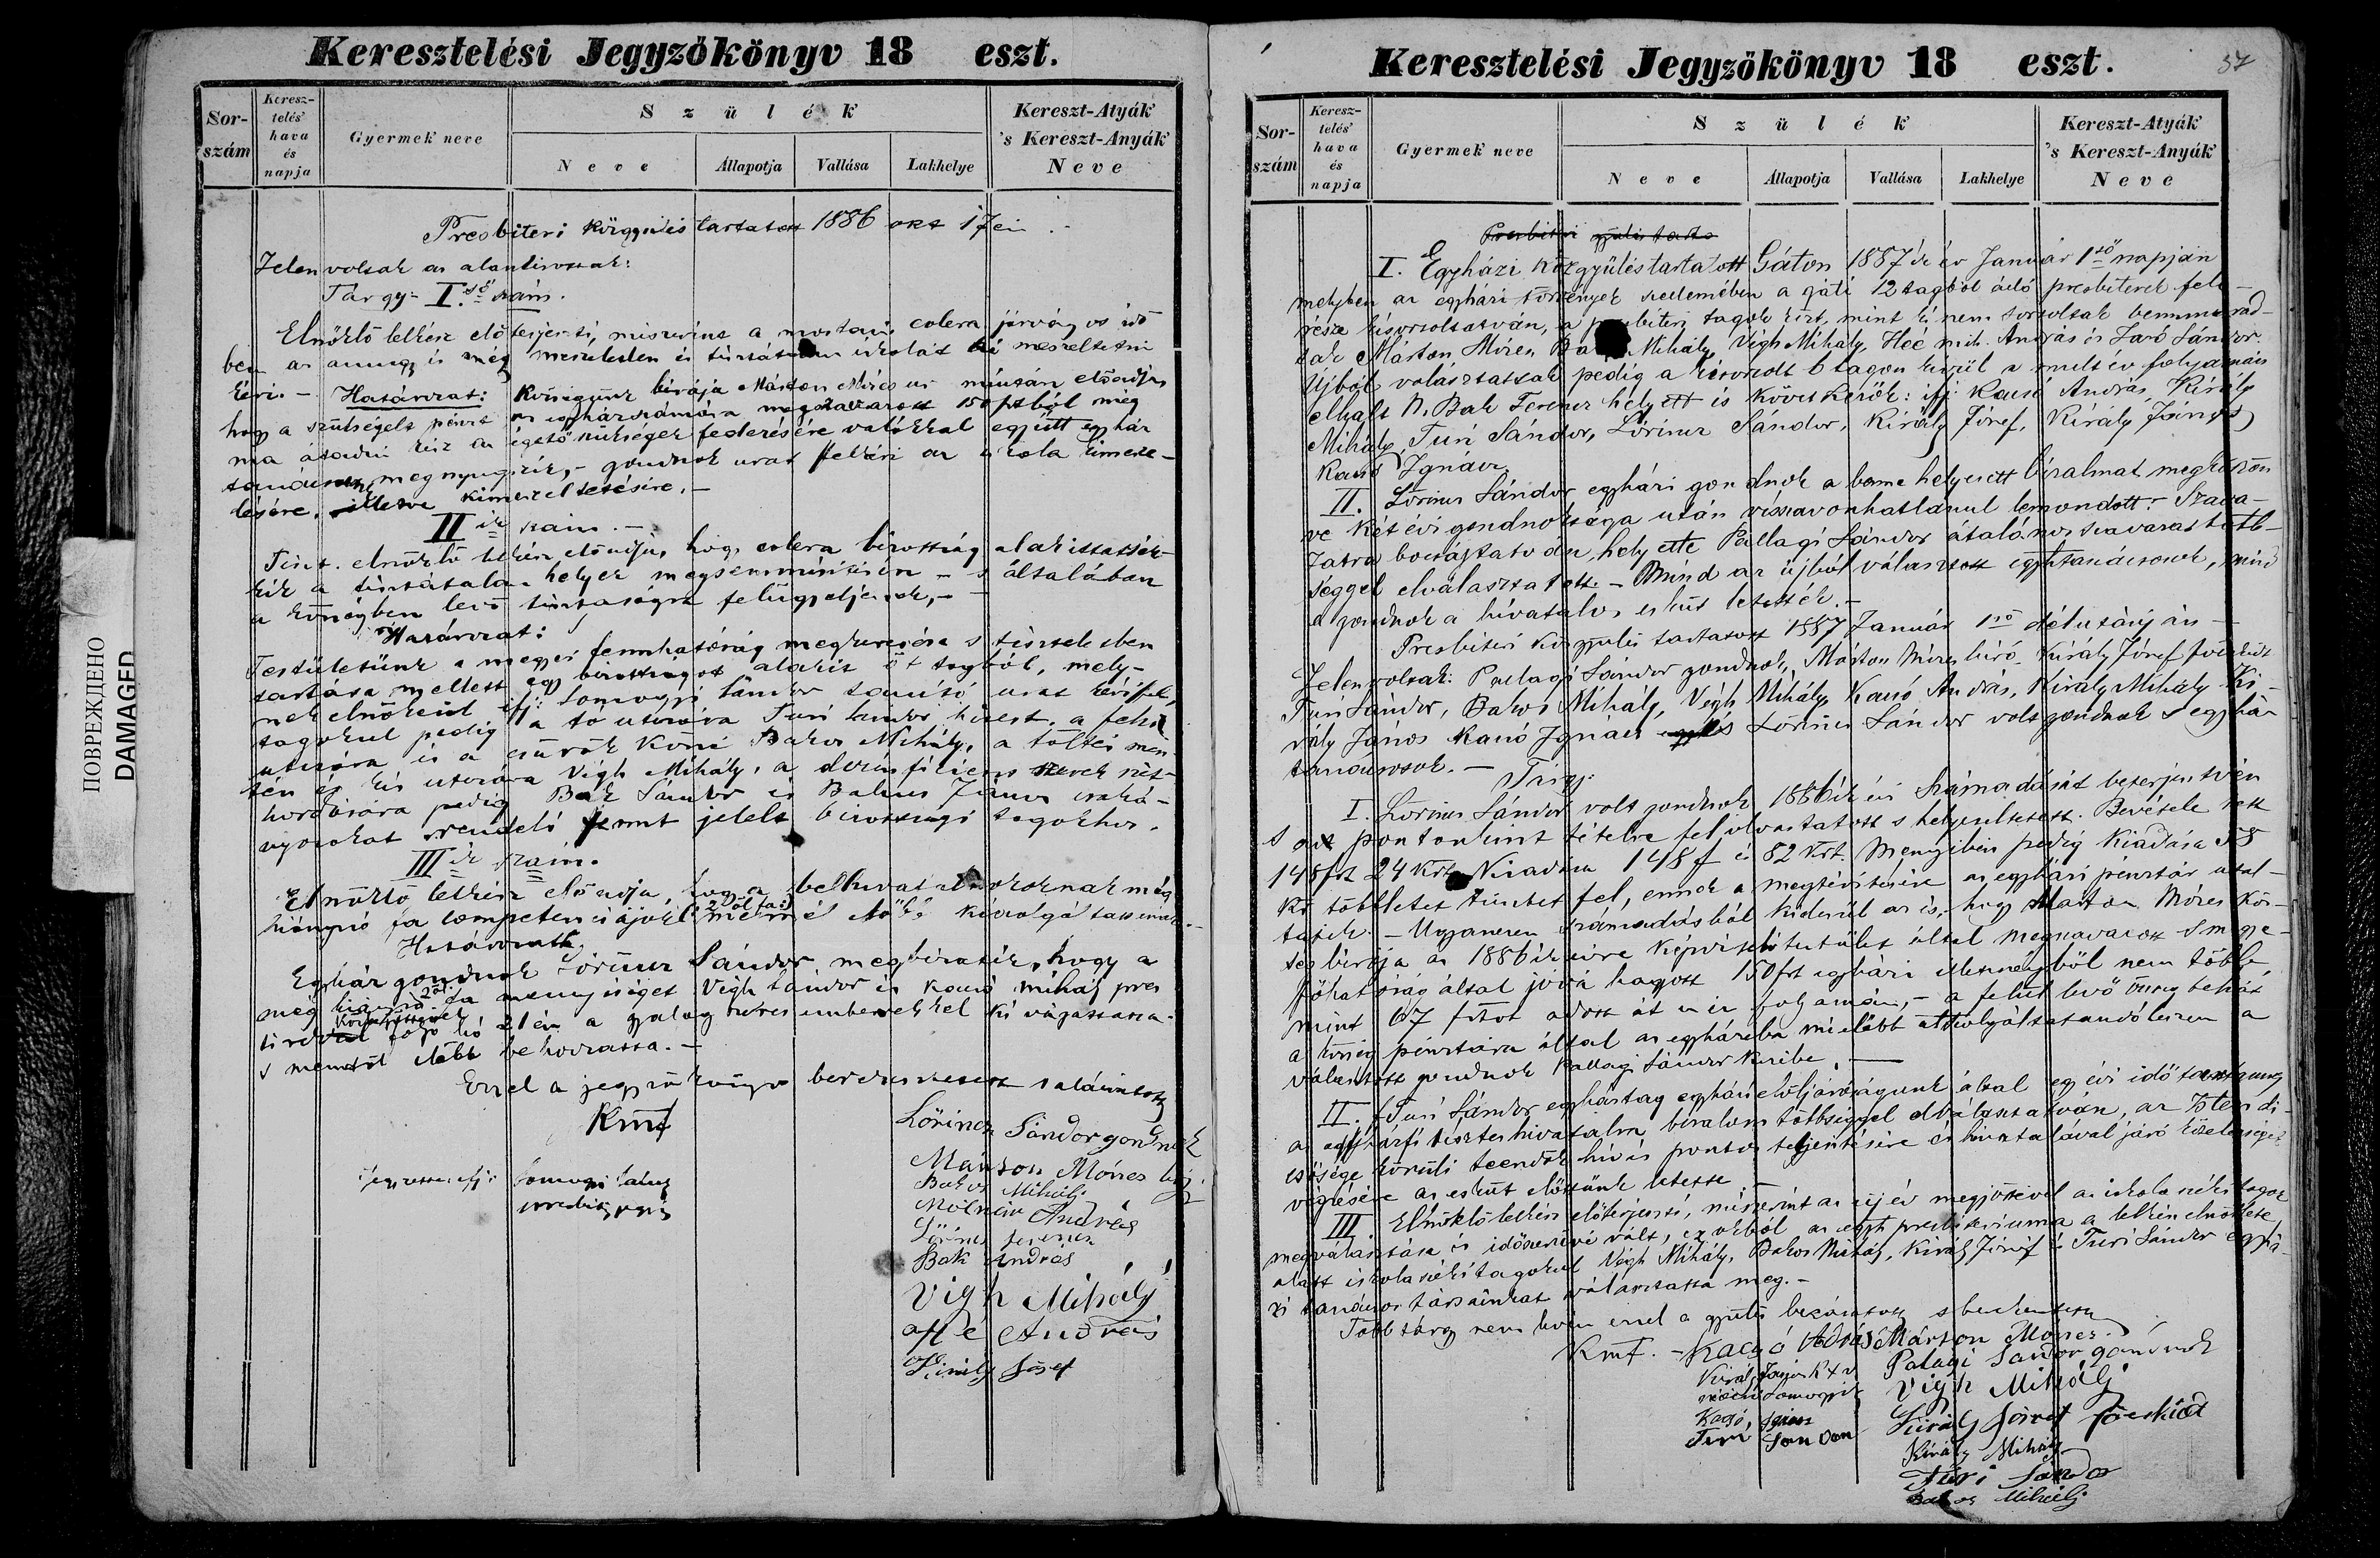 Keresztelési Jegyzőkönyv 18 eszt.
Sor-szám
Keresz-telés' hava és napja
Gyermek neve
Szülék
Neve
Állapotja
Vallása
Lakhelye
Kereszt-Atyák 's Kereszt-Anyák Neve
Presbiteri közgyülés tartatott 1886 okt 17én
Jelen voltak az alantirottak:
Tárgy I.ső szám.
Elnöklő lelkész előterjeszti, miszerint a mostani colera járványos idő
ben az amugy is még meszeletlen és iskolát ki meszeltetni
kéri. - Határozat: Községünk birája Márton Móses ur előadja
hogy a szükségelt pénzt az egyház számára 150 ftból még
ma átadni kész az égető szükségek fedezésére együtt egyház
tanácsunk megnyugszik, - gondnok urat felkéri az iskola kimesze-
lésére. illetve kimeszeltetésére. -
II ik szám. -
Tiszt. elnöklő lelkész előadja, hogy colera bizottság alakittassék
kik a tisztátalan helyek megsemmisitésén - s általában
a községben levő tisztaságra felügyeljenek, -
Határozat:
Testületünk a megyei fennhatóság megkeresése s tiszteletben
tartása mellett egy bizottságot alakit öt tagból, mely-
nek elnökéül ifj: Somogyi Sándor tanitó urat kéri fel,
tagokul pedig a fő utczára Turi Sándor a felső
utczára és a csürök közé Bakos Mihály, a töltés men-
tén és kis utczára Végh Mihály, a
hordására pedig Bak Sándor és János
nyosokat rendeli fennt jelelt bizottsági tagokhoz.
III ik szám.
Elnöklő lelkész előadja, hogy a még
hiányzó fa competencziájokat 2 öl fa: mennél előbb kiszolgáltassanak. -
Határozat
Egyház gondnok Lörincz Sándor megbizatik, hogy a
még hiányzó 2 öl fa mennyiséget Végh Sándor és Kacsó Mihály pres
folyó hó 21én a gyalog szeres emberekkel ki vágassassa
s mentől előbb behordassa. -
Ezzel a jegyzőkönyv berekesztetett s aláiratott
Kmf
Lörincz Sándor gondnok
Márton Móses
Bakos Mihálj
Molnár András
Lörincz Ferencz
Bak András
Vigh Mihálj
András
Király Jósef
Somogyi
ПОВРЕЖДЕНО
DAMAGED
Keresztelési Jegyzőkönyv 18 eszt.
37
Sor-szám
Keresz-telés' hava és napja
Gyermek neve
Szülék
Neve
Állapotja
Vallása
Lakhelye
Kereszt-Atyák 's Kereszt-Anyák Neve
Presbiteri gyülés tarta
I. Egyházi közgyülés tartatott Gáton 1887 ik év Január 1ső napján
melyben az egyházi törvények szellemében a gáti 12 tagból álló presbiterek fele-
része kisorsoltatván, a presbiteri tagok közt, mint ki nem sorsoltak bennmarad-
tak Márton Móses, Mihály, Végh Mihály, Héé András és Sándor.
Ujból választattak pedig a kisorsolt 6 tagon kivül a mult év folyamán
elhalt N. Bak Ferencz helyett is következők: ifj. Kacsó András, Király
Mihály, Turi Sándor, Lörincz Sándor, Király Jósef, Király János,
Kacsó Ignácz.
II. Lörincz Sándor egyházi gondnok a benne helyezett bizalmat megköszön
ve két évi gondnoksága után visszavonhatlanul lemondott. Szava-
zatra bocsájtatván, helyette Pallagi Sándor átalános szavazattöbb-
séggel elválasztatott. - Mind az ujból választott egyháztanácsosok, mind
a gondnok a hivatalos esküt letették. -
Presbiteri közgyülés tartatott 1887 Január 1ső délutánján -
Jelen voltak: Pallagi Sándor gondnok, Márton Móses biró, Király Jósef
Turi Sándor, Bakos Mihály, Végh Mihály, Kacsó András, Király Mihály Ki-
rály János Kacsó Ignácz és Lörincz Sándor volt gondnok s egyház
tanácsosok. -
Tárgy.
I. Lörincz Sándor volt gondnok 1886ik évi Számadását beterjesztvén
s az pontonkint tételre felolvastatott s helyeseltetett. Bevétele tett
148 frt 24 krt. Kiadása 148 f és 82 krt. Menyiben pedig kiadása 58
kr többletet tüntet fel, ennek a megtéritésére az egyházi pénztár utal-
tatik. - Ugyanezen számadásból kiderül az is, hogy Márton Móses köz-
ség birája az 1886ik évre képviselőtestület által megszavazott s megye-
főhatóság által jóvá hagyott 150 frt egyházi illetményből nem többe,
mint 67 frtot adott át az év folyamán, - a felül levő összeg tehát
a község pénztára által az egyházba mielőbb átszolgáltatandó lészen a
választott gondnok Pallagi Sándor kezébe. -
II. Turi Sándor egyháztag egyházi előljáróságunk által egy évi időtartamra
az egyházfi tisztes hivatalra bizalom többséggel elválasztatván, az Isten di-
csősége körüli teendők hiv és pontos teljesitésére és hivatalával járó kötelességek
végzésére az esküt előttünk letette. -
III. Elnöklő lelkész előterjeszti, miszerint az uj év megjöttével az iskola széki tagok
megválasztása is időszerüvé vált, ez okból az egyh. presbiteriuma a lelkész elnöklete
alatt iskolaszéki tagokul Végh Mihály, Bakos Mihály, Király Jósef és Turi Sándor egyhá-
zi tanácsos társainkat választatta meg. -
Több tárgy nem lévén ezzel a gyülés bezáratott s berekesztetett
Kmf. - Kacsó András Márton Moses.
Király János Palagi Sandor gondnok
Somogyi Vigh Mihálj
Kacsó Király Jósef
Turi Sandor Király Mihály
Türi Sándor
Bakos Mihálj